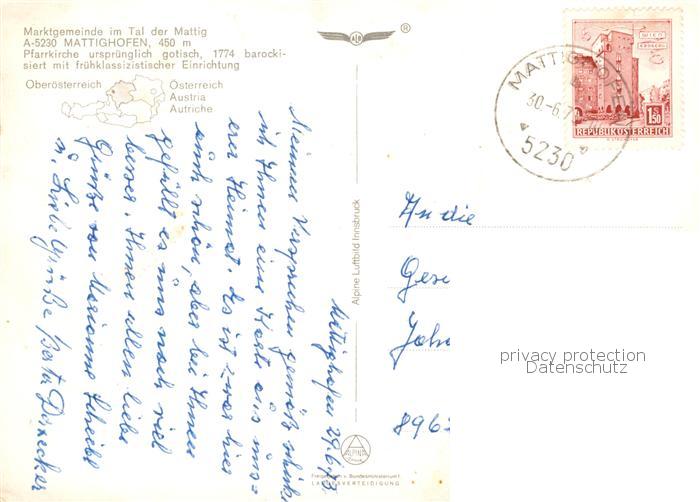 Marktgemeinde im Tal der Mattig
A-5230 MATTIGHOFEN, 450 m
Pfarrkirche ursprünglich gotisch, 1774 barocki-
siert mit frühklassizistischer Einrichtung
Oberösterreich
Österreich
Austria
Autriche
®
MATTIGHOFEN
30.-6.7
5230
WIEN
1.50
REPUBLIK ÖSTERREICH
Mattighofen 29/6/73
Meinem Versprechen gemäß schicke
ich Ihnen eine Karte aus uns=
erer Heimat. Es ist zwar hier
auch schön, aber bei Ihnen
gefällt es uns noch viel
besser. Ihnen allen liebe
Grüße von Marianne
u. Liebe Grüße Berta
An die
Joh
896
Alpine Luftbild Innsbruck
ALPINE
Freigegeben v. Bundesministerium f.
LANDESVERTEIDIGUNG
privacy protection
Datenschutz